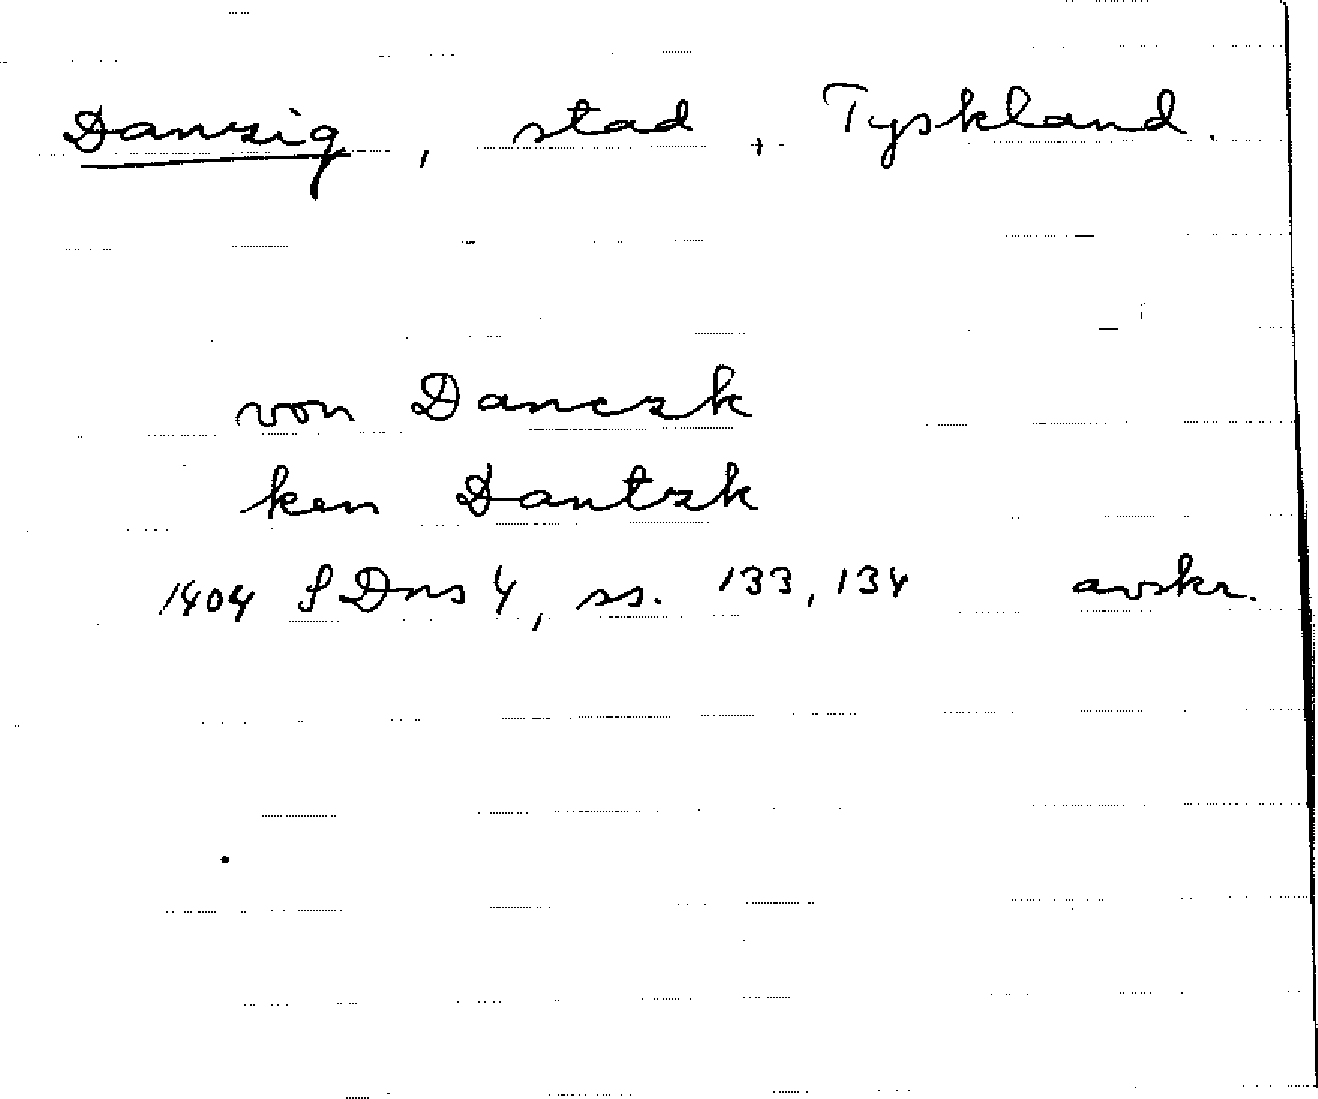 Danzig, stad, Tyskland.
von Danczk
ken Dantzk
1404 SDns 4, ss. 133, 134 avskr.